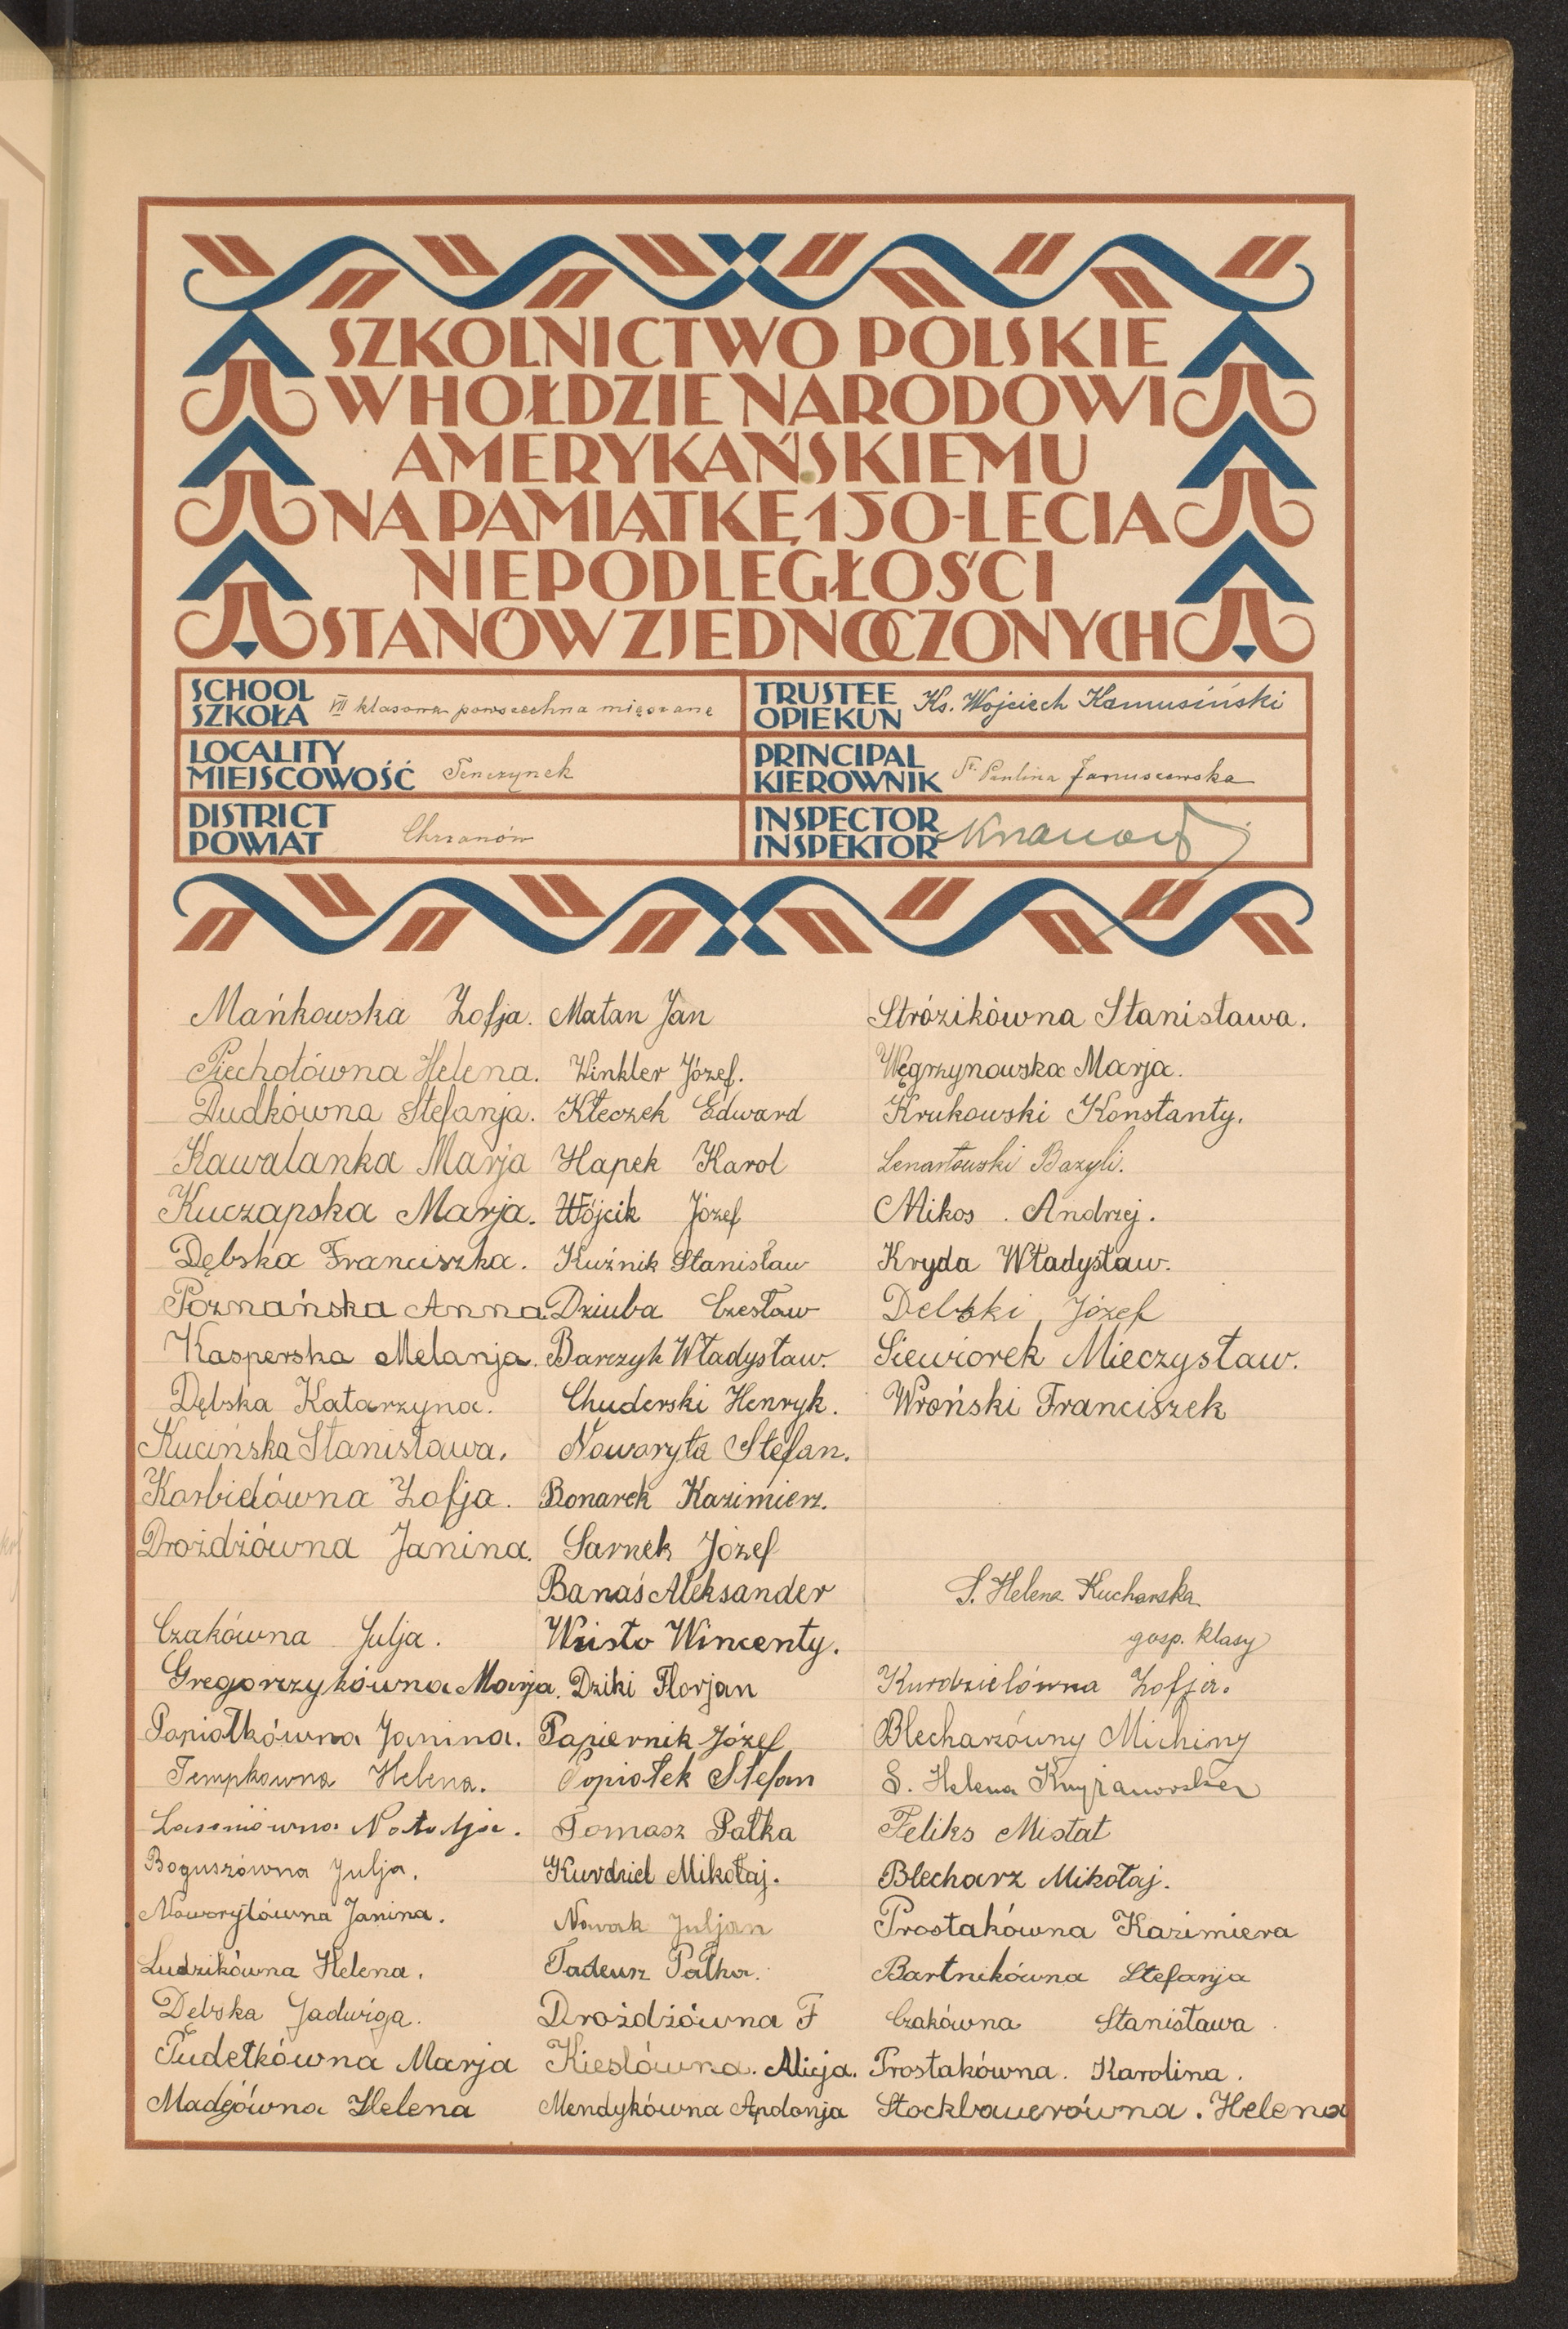 SZKOLNICTWO POLSKIE
W HOŁDZIE NARODOWI
AMERYKAŃSKIEMU
NA PAMIĄTKĘ 150-LECIA
NIEPODLEGŁOŚCI
STANÓW ZJEDNOCZONYCH
SCHOOL
SZKOŁA
VII klasowa powszechna mieszana
TRUSTEE
OPIEKUN
Ks. Wojciech Kamusiński
LOCALITY
MIEJSCOWOŚĆ
Tenczynek
PRINCIPAL
KIEROWNIK
Paulina Januszewska
DISTRICT
POWIAT
Chrzanów
INSPECTOR
INSPEKTOR
Mańkowska Zofja.
Piechotówna Helena.
Dudkówna Stefanja.
Kawalanka Marja
Kuczapska Marja.
Dębska Franciszka.
Poznańska Anna
Kasperska Melanja.
Dębska Katarzyna.
Kucińska Stanisława.
Korbielówna Zofja.
Drożdżówna Janina.
Czakówna Julja.
Gregorczykówna Marja.
Popiołkówna Janina.
Tempkowna Helena.
Natalja.
Boguszówna Julja.
Noworytówna Janina.
Ludzikówna Helena.
Dębska Jadwiga.
Pudełkówna Marja
Madejówna Helena
Matan Jan
Winkler Józef.
Kłeczek Edward
Hapek Karol
Wójcik Józef
Kuźnik Stanisław
Dziuba Czesław
Barczyk Władysław.
Chuderski Henryk.
Noworyta Stefan.
Bonarek Kazimierz.
Sarnek Józef
Banaś Aleksander
Wcisło Wincenty.
Dziki Florjan
Papiernik Józef
Popiołek Stefan
Tomasz Pałka
Kurdziel Mikołaj.
Nowak Juljan
Tadeusz Pałka.
Drożdżówna F
Kieslówna. Alicja.
Mendykówna Apolonja
Stróżikówna Stanisława.
Węgrzynowska Marja.
Krukowski Konstanty.
Lenartowski Bazyli.
Mikos Andrzej.
Kryda Władysław.
Debski Józef
Siewiorek Mieczysław.
Wroński Franciszek
S. Helena Kucharska
gosp. klasy
Kurdzielówna Zofja.
Blecharzówny Michiny
S. Helena Knyżanowska
Feliks Mistat
Blecharz Mikołaj.
Prostakówna Kazimiera
Bartnikówna Stefanja
Czakówna Stanisława.
Prostakówna. Karolina.
Stockbauerówna. Helena